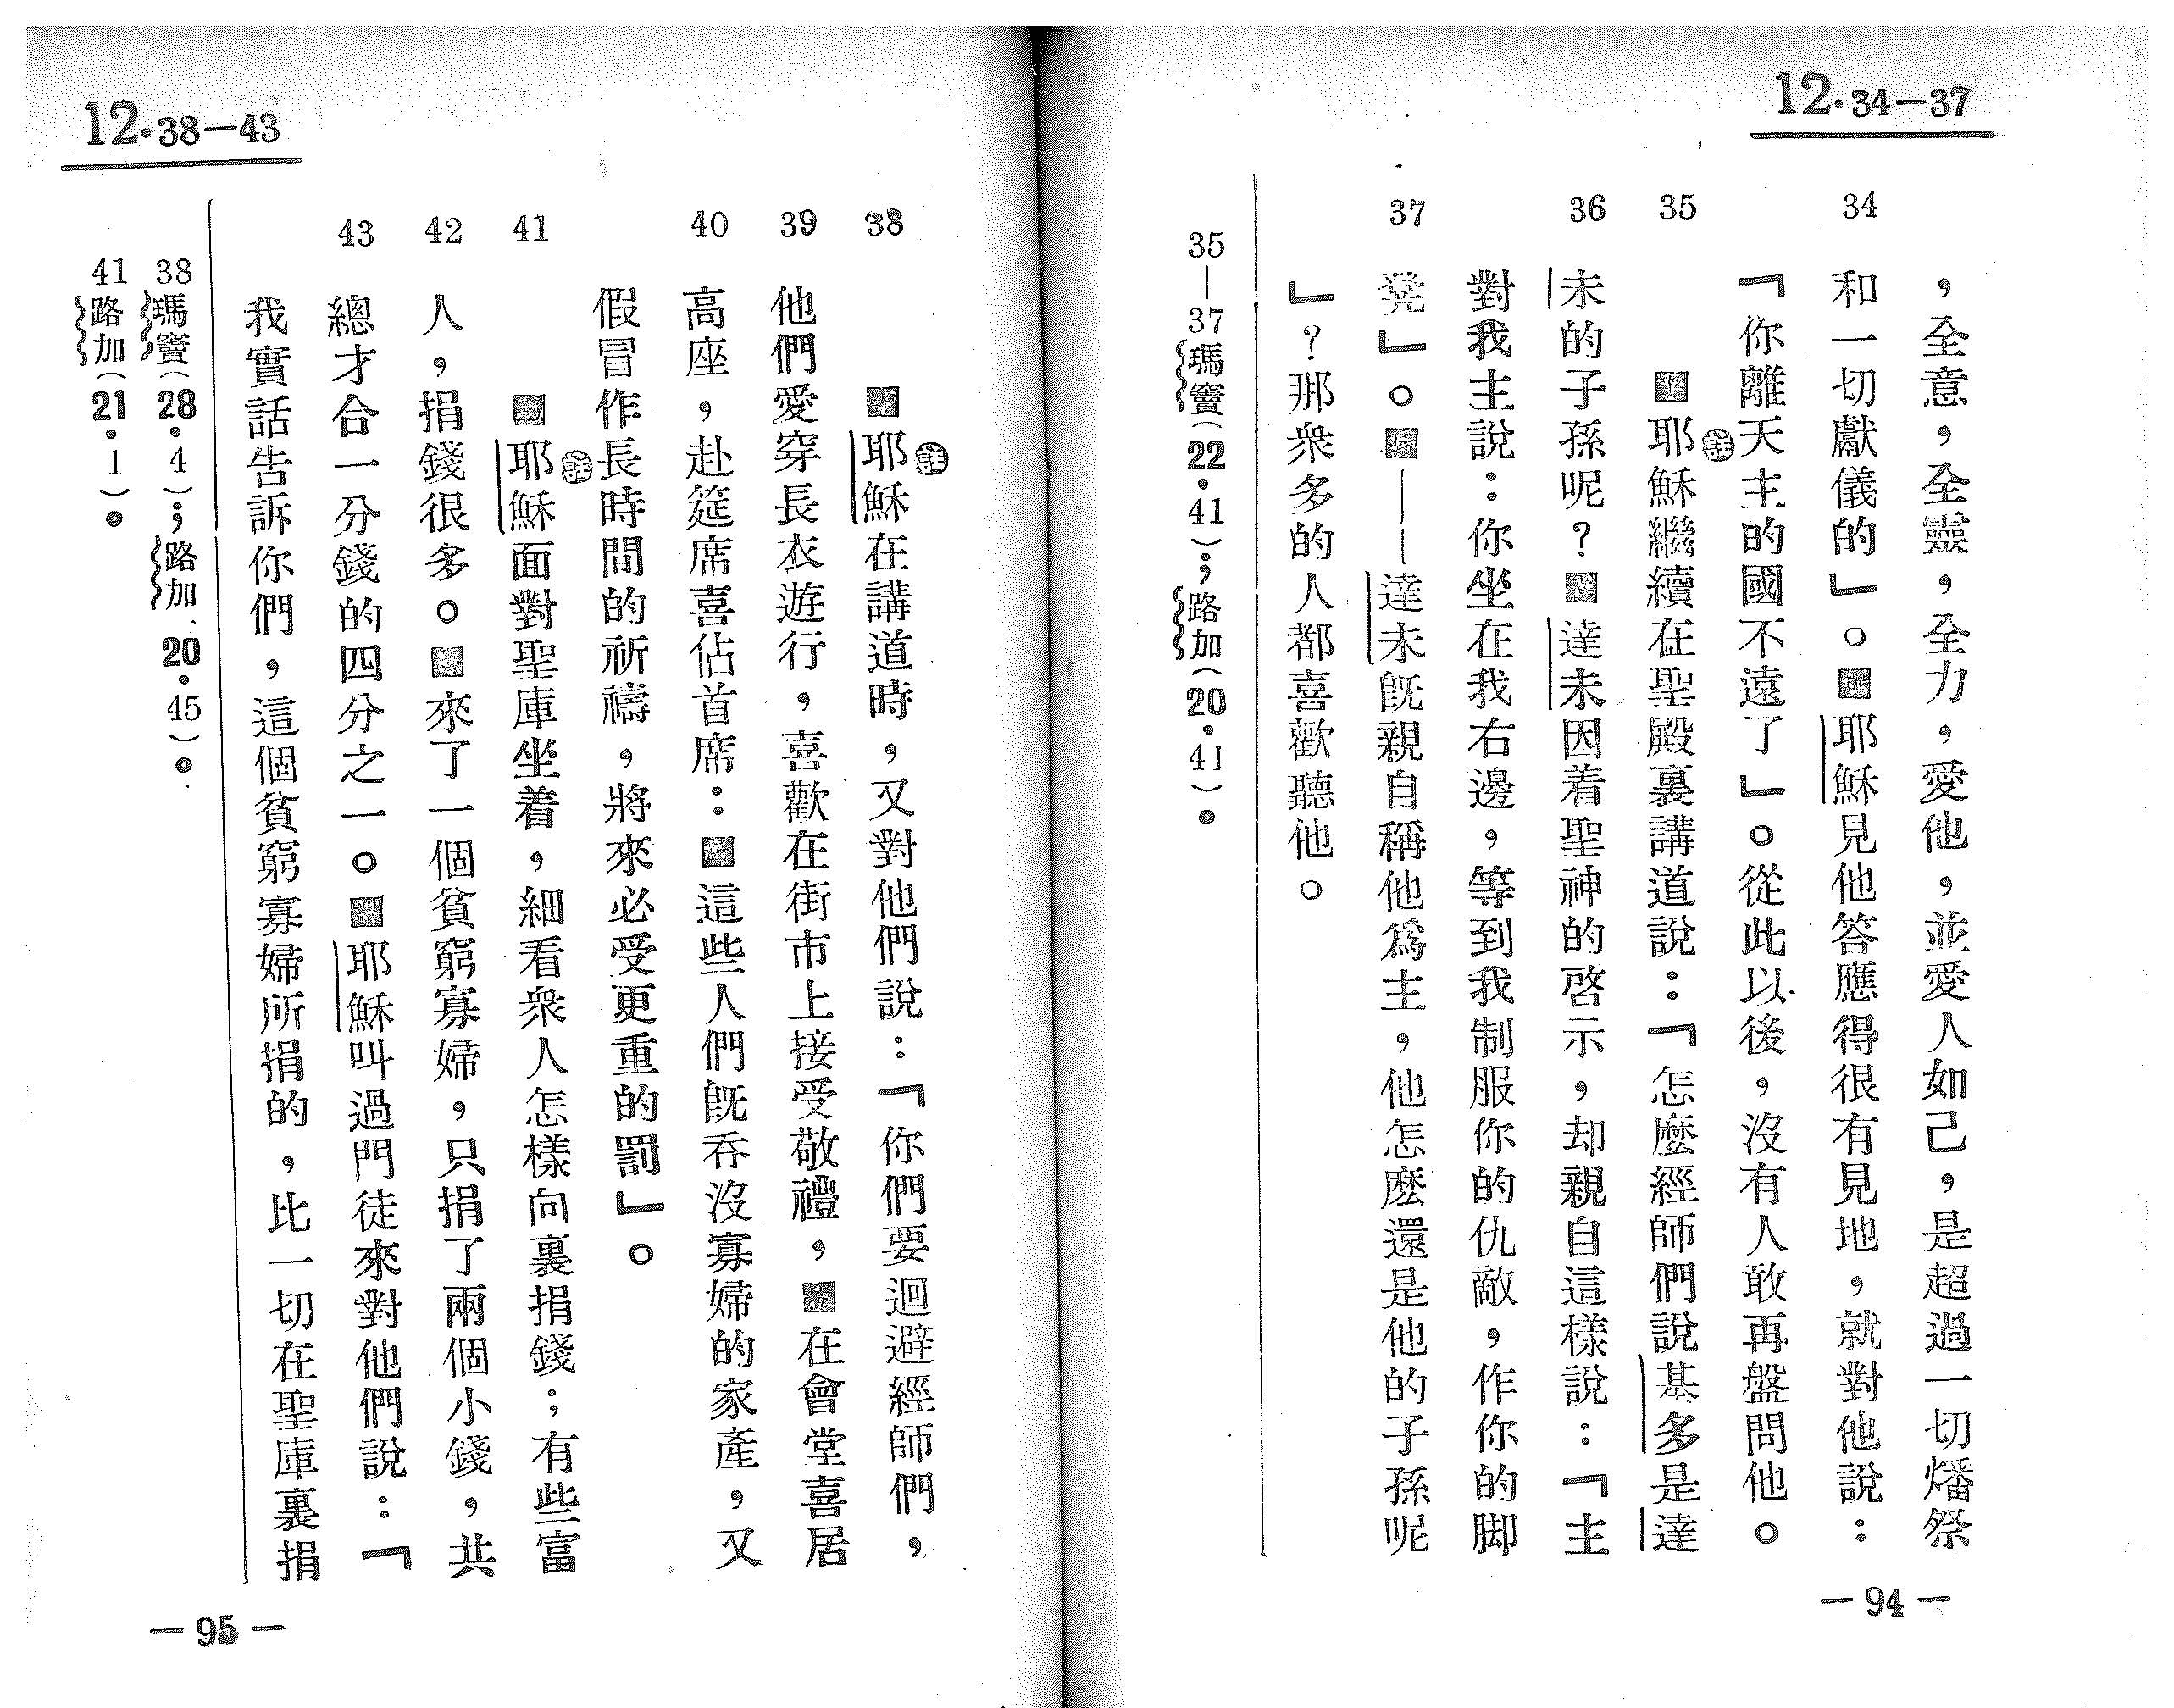 12·34—37
34
35
36
37
，全意，全靈，全力，愛他，並愛人如己，是超過一切燔祭
和一切獻儀的」。耶穌見他答應得很有見地，就對他說：
「你離天主的國不遠了」。從此以後，沒有人敢再盤問他。
註
耶穌繼續在聖殿裏講道說：「怎麼經師們說基多是達
未的子孫呢？達未因着聖神的啓示，却親自這樣說：「主
對我主說：你坐在我右邊，等到我制服你的仇敵，作你的脚
凳」。——達未旣親自稱他爲主，他怎麼還是他的子孫呢
」？那衆多的人都喜歡聽他。
35—37瑪竇（22·41）；路加（20·41）。
—94—
12·38—43
38
39
40
41
42
43
註
耶穌在講道時，又對他們說：「你們要迴避經師們，
他們愛穿長衣遊行，喜歡在街市上接受敬禮，在會堂喜居
高座，赴筵席喜佔首席：這些人們旣吞沒寡婦的家產，又
假冒作長時間的祈禱，將來必受更重的罰」。
註
耶穌面對聖庫坐着，細看衆人怎樣向裏捐錢；有些富
人，捐錢很多。來了一個貧窮寡婦，只捐了兩個小錢，共
總才合一分錢的四分之一。耶穌叫過門徒來對他們說：「
我實話告訴你們，這個貧窮寡婦所捐的，比一切在聖庫裏捐
38瑪竇（28·4）；路加 20·45）。
41路加（21·1）。
—95—